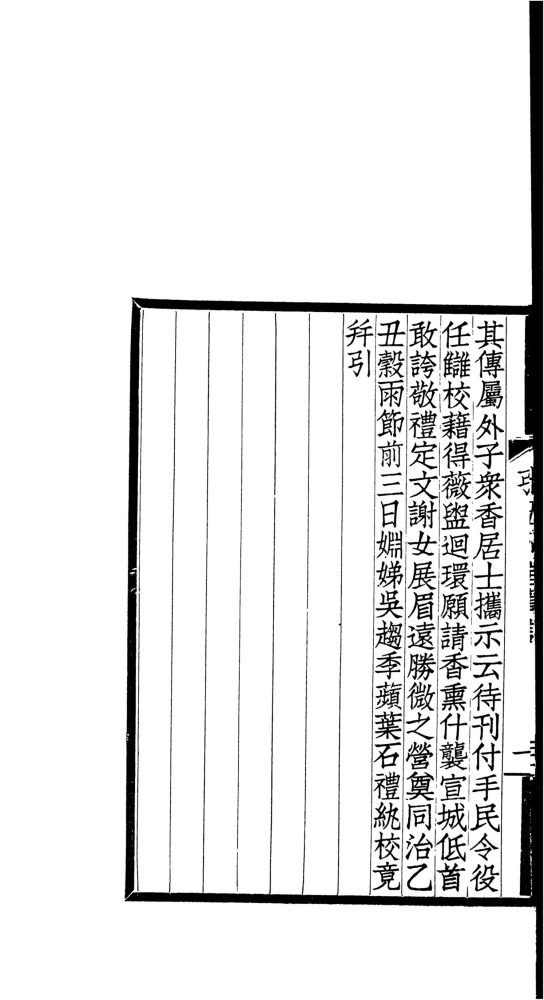 其傳屬外子衆香居士攜示云待刊付手民令役
任讎校藉得薇盥迴環願請香熏什襲宣城低首
敢誇敬禮定文謝女展眉遠勝微之營奠同治乙
丑穀雨節前三日婣娣吳趨季蘋葉石禮紈校竟
幷引